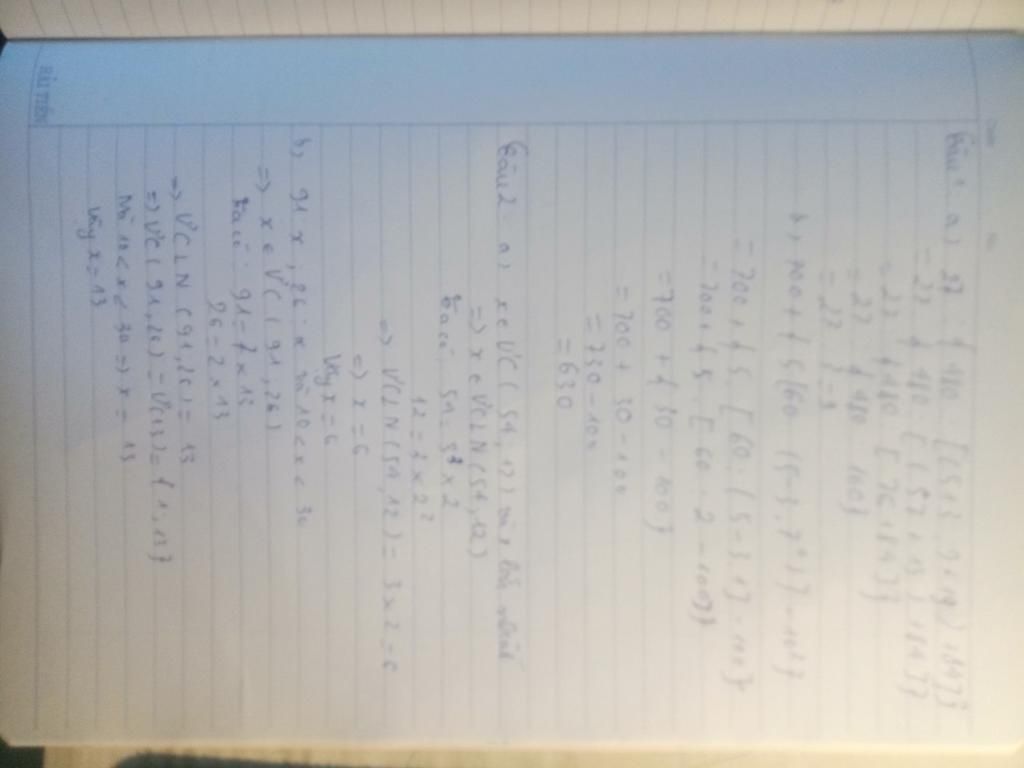 HẢI TIẾN
Câu 1: a) 27 : { 480 : [ (5+3 . 9+19) + 84 ] }
= 27 : { 480 : [ (57+19) + 84 ] }
= 27 : { 480 : [ 76+84 ] }
= 27 : { 480 : 160 }
= 27 : 3 = 9
= 700 + { 5 . [ 60 : (5-3.1] - 100 }
= 700 + { 5 . [ 60 : 2 - 100] }
= 700 + { 30 - 100 }
= 700 + 30 - 100
= 730 - 100
= 630
Câu 2: a) x ∈ ƯC ( 54, 12) và x lớn nhất
=> x ∈ ƯCLN (54, 12)
Ta có: 54 = 3³ x 2
12 = 3 x 2²
=> ƯCLN (54, 12) = 3 x 2 = 6
=> x = 6
Vậy x = 6
b) 91 : x ; 26 : x và 10 < x < 30
=> x ∈ ƯC ( 91, 26)
Ta có: 91 = 7 x 13
26 = 2 x 13
=> ƯCLN (91, 26) = 13
=> ƯC ( 91, 26) = Ư(13) = { 1, 13 }
Mà 10 < x < 30 => x = 13
Vậy x = 13